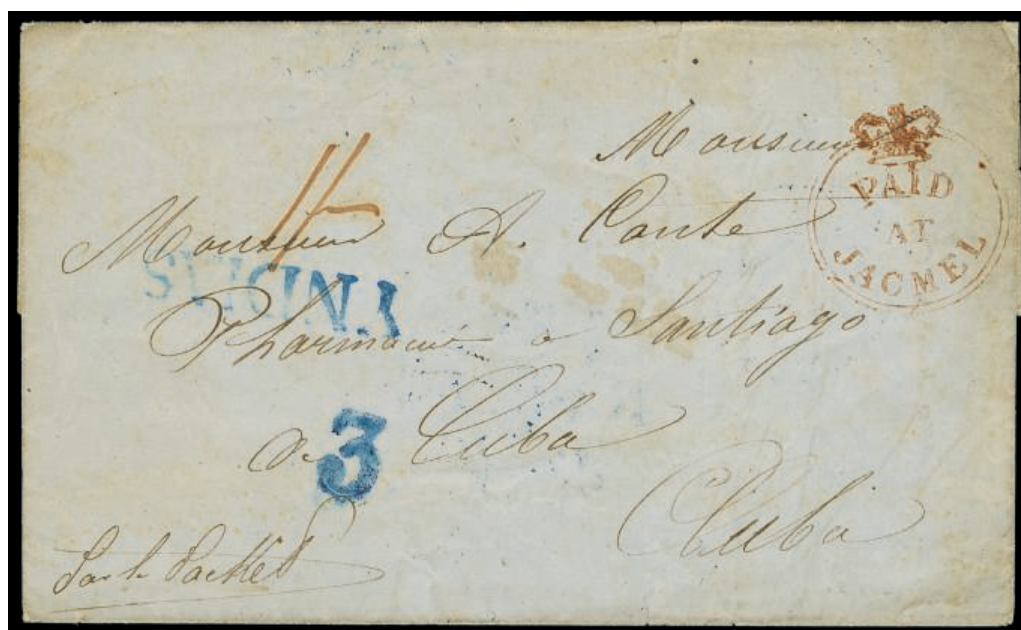 Monsieur
PAID
AT
JACMEL
1/-
Monsieur A. Conte
Pharmacie a Santiago
3
de Cuba
Cuba
Par le Packet